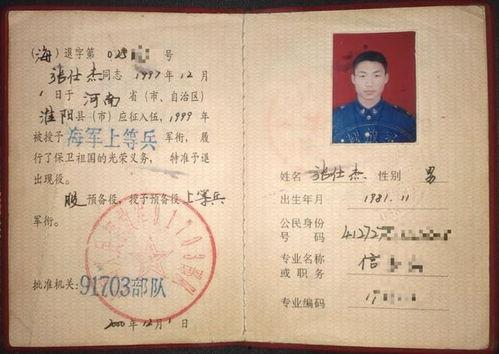 (海)退字第 025 号
张仕杰同志 1997 年 12 月
1 日于 河南 省(市、自治区)
淮阳 县(市)应征入伍, 1999 年
被授予 海军上等兵 军衔, 履
行了保卫祖国的光荣义务, 特准予退
出现役。
服 预备役, 授予预备役 上等兵
军衔。
批准机关: 91703部队
2000 年 12 月 1 日
姓名 张仕杰 性别 男
出生年月 1981.11
公民身份
号码 41272
专业名称
或职务 信
专业编码